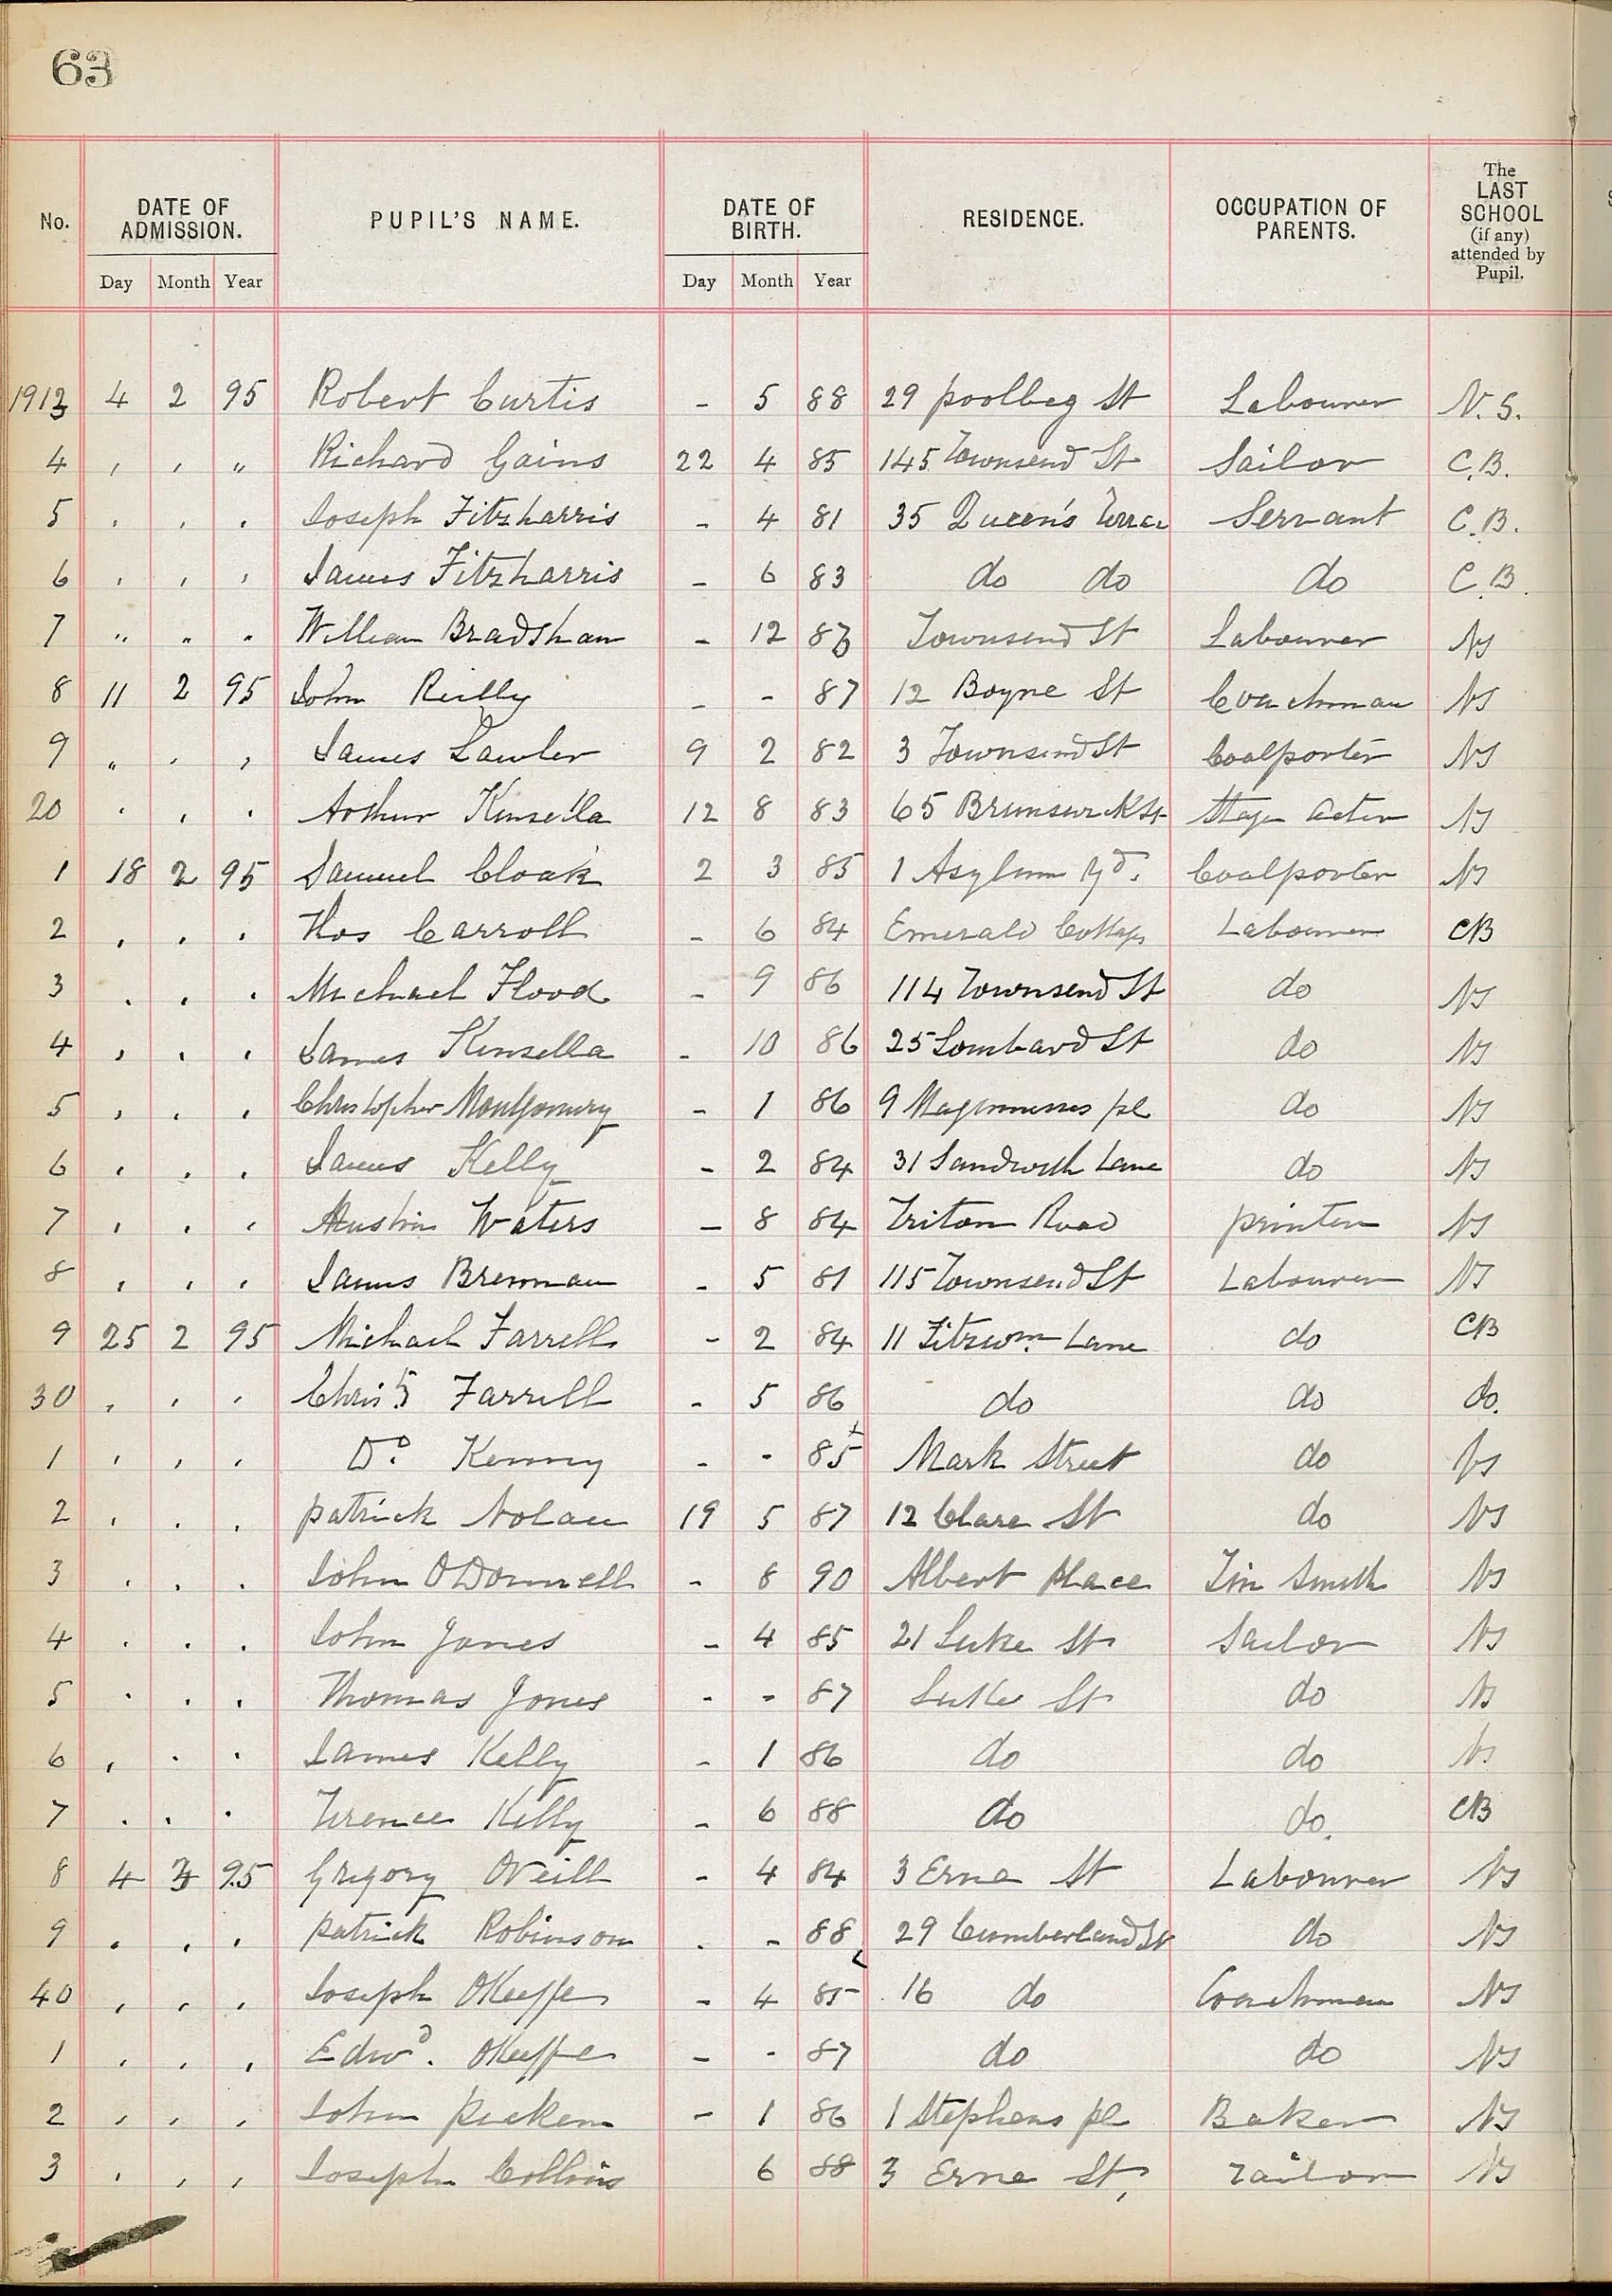 63
No. DATE OF ADMISSION. PUPIL'S NAME. DATE OF BIRTH. RESIDENCE. OCCUPATION OF PARENTS. The LAST SCHOOL (if any) attended by Pupil.
Day Month Year Day Month Year
1913 4 2 95 Robert Curtis - 5 88 29 poolbeg St Labourer N.S.
4 , , " Richard Gains 22 4 85 145 Townsend St Sailor C.B.
5 . , . Joseph Fitzharris - 4 81 35 Queen's Terrace Servant C.B.
6 , , , James Fitzharris - 6 83 do do do C.B.
7 " " " William Bradshaw - 12 Townsend St Labourer NS
8 11 2 95 John Reilly - - 87 12 Boyne St Coachman NS
9 " , , James Lawler 9 2 82 3 Townsend St Coalporter NS
20 . , . Arthur Kinsella 12 8 83 65 Brunswick St Stage Actor NS
1 18 2 95 Samuel Cloak 2 3 85 1 Asylum Yd. Coalporter NS
2 , . . Thos Carroll - 6 84 Emerald Cottages Labourer CB
3 . . . Michael Flood - 9 86 114 Townsend St do NS
4 , . , James Kinsella - 10 86 25 Lombard St do NS
5 , . , Christopher Montgomery - 1 86 9 Magennisses pl do NS
6 . . . James Kelly - 2 84 31 Sandwith Lane do NS
7 , . , Austin Waters - 8 84 Triton Road printer NS
8 , . , James Brennan - 5 81 115 Townsend St Labourer NS
9 25 2 95 Michael Farrell - 2 84 11 Fitzwm. Lane do CB
30 , , , Christ. Farrell - 5 86 do do do.
1 , , , Do. Kenny - - 85 Mark Street do NS
2 . . . patrick Nolan 19 5 87 12 Clare St do NS
3 . . . John ODonnell - 8 90 Albert place Tin Smith NS
4 . . . John Jones - 4 85 21 Luke St Sailor NS
5 . . . Thomas Jones - - 87 Luke St do NS
6 , . . James Kelly - 1 86 do do NS
7 . . . Terence Kelly - 6 88 do do. CB
8 4 3 95 Gregory ONeill - 4 84 3 Erne St Labourer NS
9 . . . patrick Robinson . - 88 29 Cumberland St do NS
40 , , , Joseph OKeeffe - 4 85 16 do Coachman NS
1 , , , Edwd. OKeeffe - - 87 do do NS
2 , , , John - 1 86 1 Stephens pl Baker NS
3 , , , Joseph Collins 6 88 3 Erne St, Tailor NS